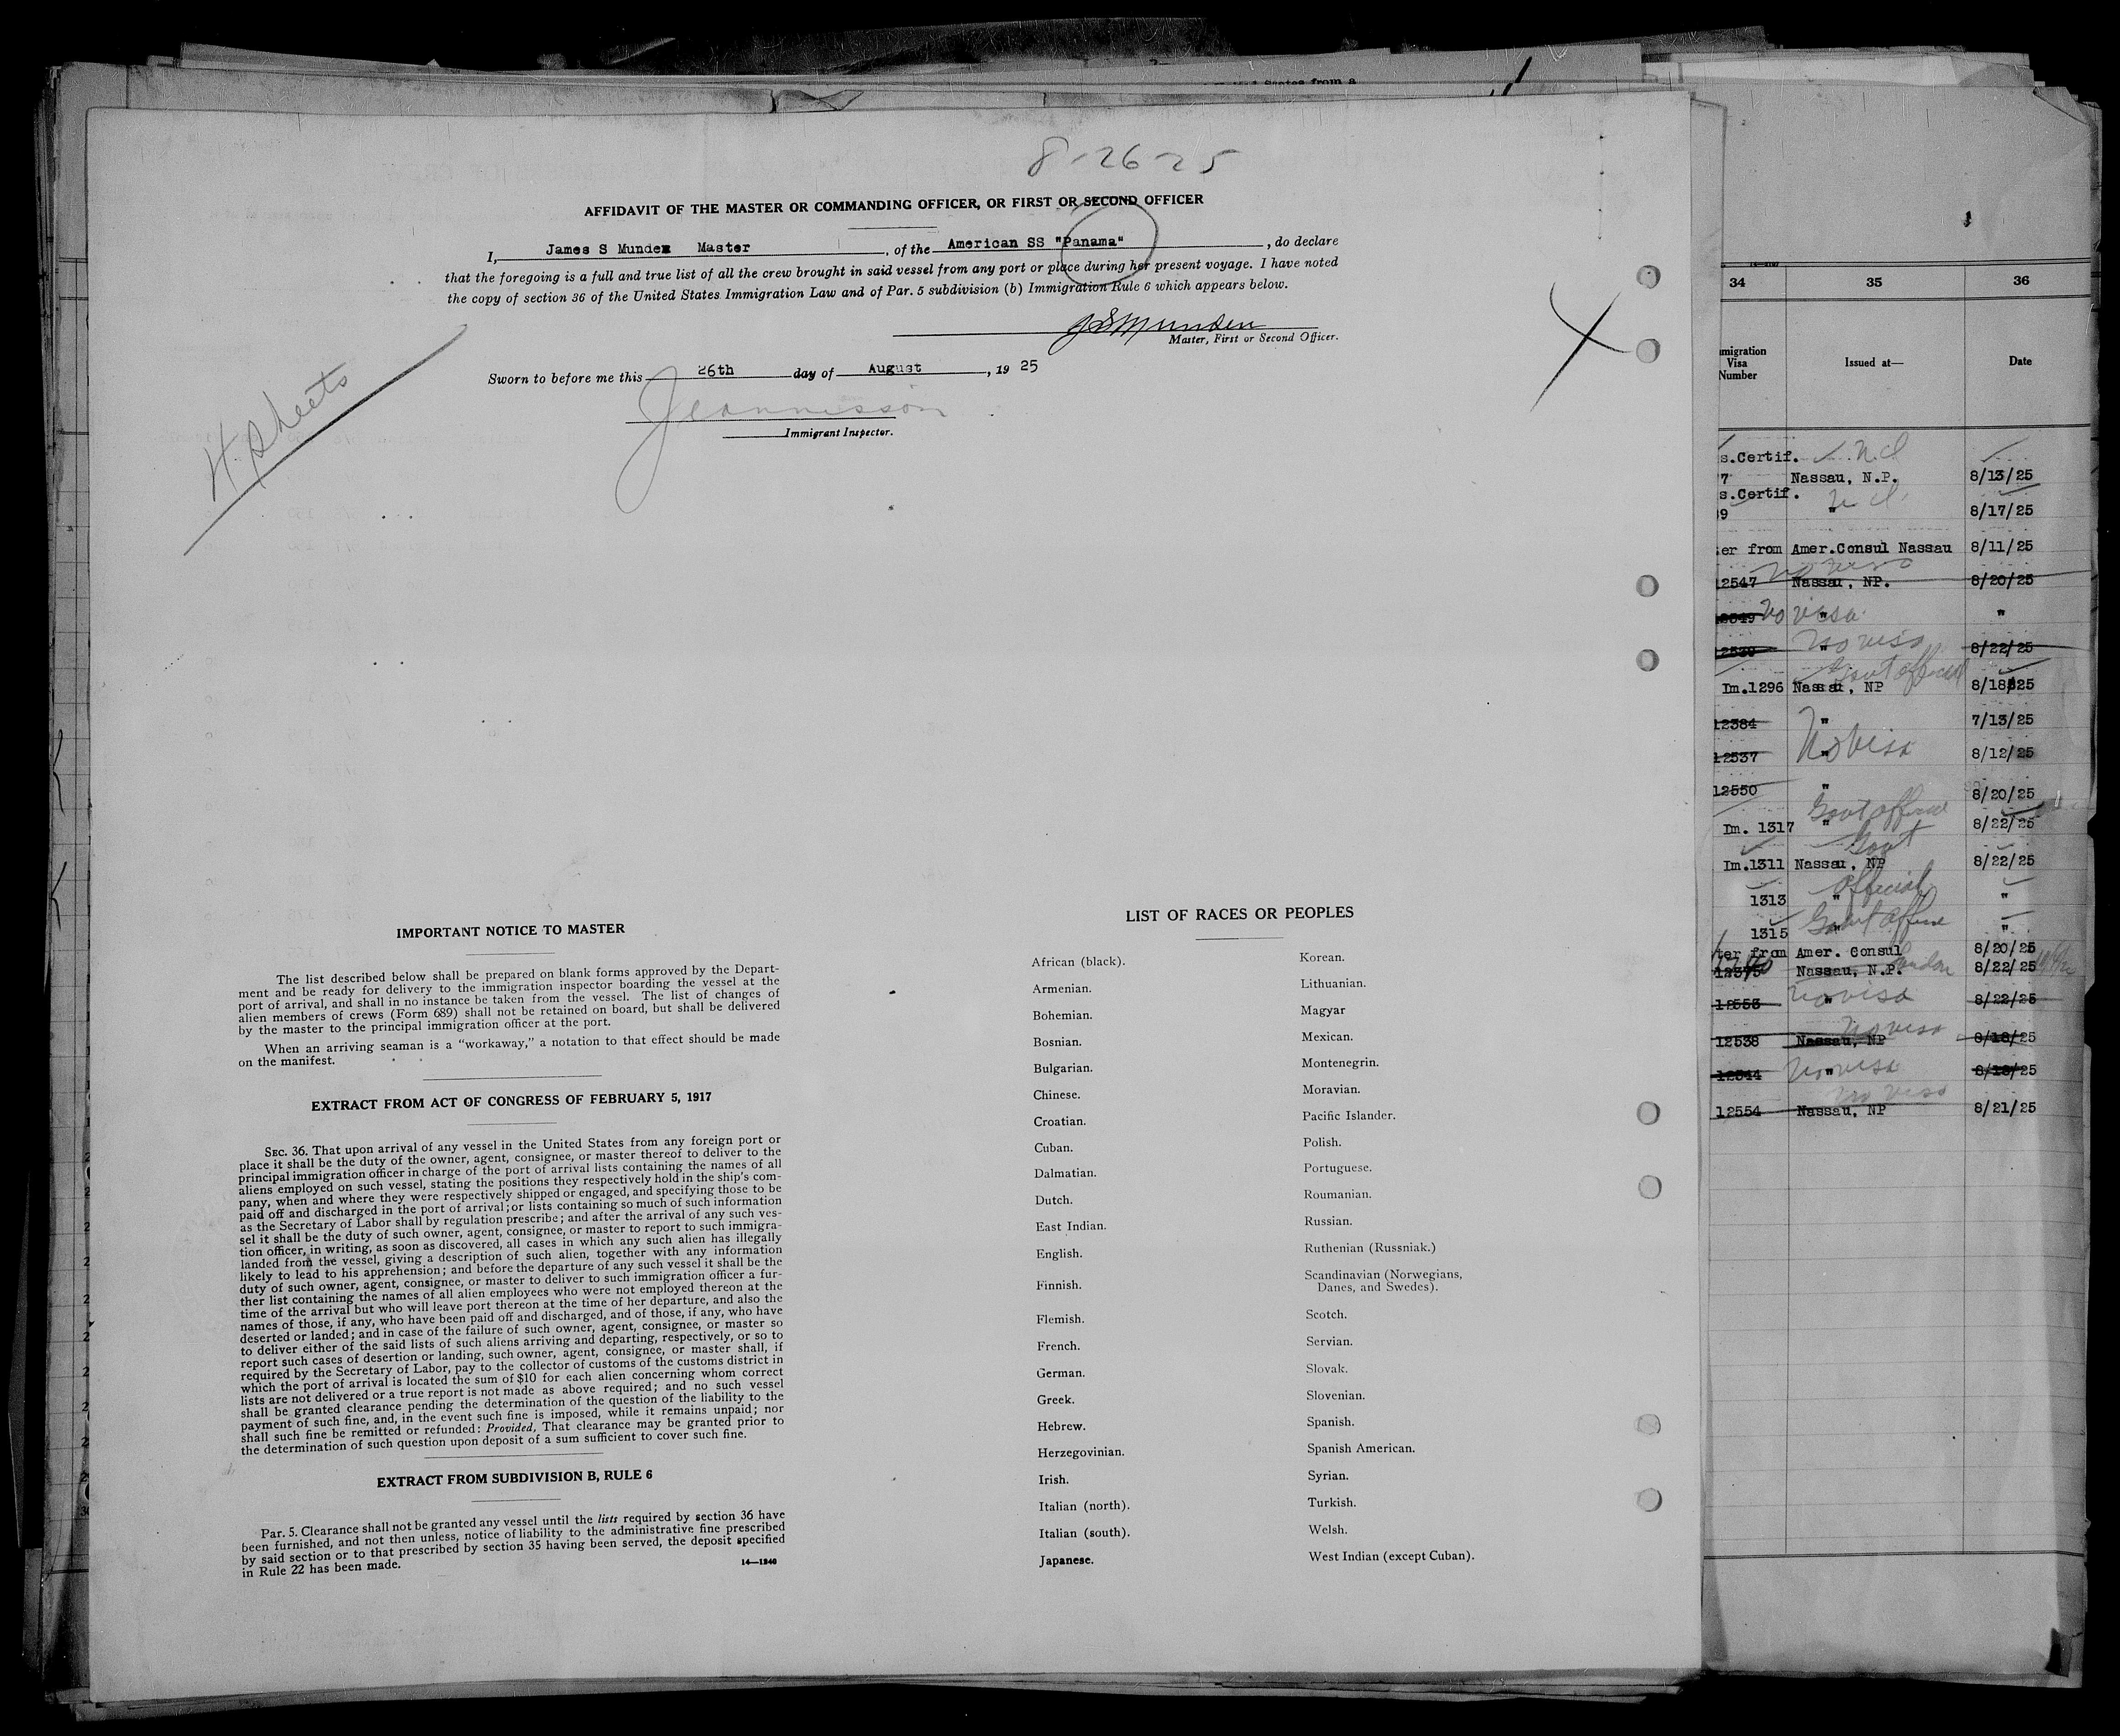 8-26-25
AFFIDAVIT OF THE MASTER OR COMMANDING OFFICER, OR FIRST OR SECOND OFFICER
I, James S Munden Master, of the American SS "Panama", do declare
that the foregoing is a full and true list of all the crew brought in said vessel from any port or place during her present voyage. I have noted
the copy of section 36 of the United States Immigration Law and of Par. 5 subdivision (b) Immigration Rule 6 which appears below.
J S Munden
Master, First or Second Officer.
Sworn to before me this 26th day of August, 19 25
Immigrant Inspector.
4. sheets
IMPORTANT NOTICE TO MASTER
The list described below shall be prepared on blank forms approved by the Depart-
ment and be ready for delivery to the immigration inspector boarding the vessel at the
port of arrival, and shall in no instance be taken from the vessel. The list of changes of
alien members of crews (Form 689) shall not be retained on board, but shall be delivered
by the master to the principal immigration officer at the port.
When an arriving seaman is a "workaway," a notation to that effect should be made
on the manifest.
EXTRACT FROM ACT OF CONGRESS OF FEBRUARY 5, 1917
SEC. 36. That upon arrival of any vessel in the United States from any foreign port or
place it shall be the duty of the owner, agent, consignee, or master thereof to deliver to the
principal immigration officer in charge of the port of arrival lists containing the names of all
aliens employed on such vessel, stating the positions they respectively hold in the ship's com-
pany, when and where they were respectively shipped or engaged, and specifying those to be
paid off and discharged in the port of arrival; or lists containing so much of such information
as the Secretary of Labor shall by regulation prescribe; and after the arrival of any such ves-
sel it shall be the duty of such owner, agent, consignee, or master to report to such immigra-
tion officer, in writing, as soon as discovered, all cases in which any such alien has illegally
landed from the vessel, giving a description of such alien, together with any information
likely to lead to his apprehension; and before the departure of any such vessel it shall be the
duty of such owner, agent, consignee, or master to deliver to such immigration officer a fur-
ther list containing the names of all alien employees who were not employed thereon at the
time of the arrival but who will leave port thereon at the time of her departure, and also the
names of those, if any, who have been paid off and discharged, and of those, if any, who have
deserted or landed; and in case of the failure of such owner, agent, consignee, or master so
to deliver either of the said lists of such aliens arriving and departing, respectively, or so to
report such cases of desertion or landing, such owner, agent, consignee, or master shall, if
required by the Secretary of Labor, pay to the collector of customs of the customs district in
which the port of arrival is located the sum of $10 for each alien concerning whom correct
lists are not delivered or a true report is not made as above required; and no such vessel
shall be granted clearance pending the determination of the question of the liability to the
payment of such fine, and, in the event such fine is imposed, while it remains unpaid; nor
shall such fine be remitted or refunded: Provided, That clearance may be granted prior to
the determination of such question upon deposit of a sum sufficient to cover such fine.
EXTRACT FROM SUBDIVISION B, RULE 6
Par. 5. Clearance shall not be granted any vessel until the lists required by section 36 have
been furnished, and not then unless, notice of liability to the administrative fine prescribed
by said section or to that prescribed by section 35 having been served, the deposit specified
in Rule 22 has been made.
14—1240
LIST OF RACES OR PEOPLES
African (black).
Armenian.
Bohemian.
Bosnian.
Bulgarian.
Chinese.
Croatian.
Cuban.
Dalmatian.
Dutch.
East Indian.
English.
Finnish.
Flemish.
French.
German.
Greek.
Hebrew.
Herzegovinian.
Irish.
Italian (north).
Italian (south).
Japanese.
Korean.
Lithuanian.
Magyar
Mexican.
Montenegrin.
Moravian.
Pacific Islander.
Polish.
Portuguese.
Roumanian.
Russian.
Ruthenian (Russniak.)
Scandinavian (Norwegians,
Danes, and Swedes).
Scotch.
Servian.
Slovak.
Slovenian.
Spanish.
Spanish American.
Syrian.
Turkish.
Welsh.
West Indian (except Cuban).
34 35 36
migration
Visa
Number
Issued at—
Date
s.Certif.
7 Nassau, N.P. 8/13/25
s.Certif.
9 " 8/17/25
er from Amer.Consul Nassau 8/11/25
12547 Nassau, NP. 8/20/25
No visa "
No visa " 8/22/25
Govt official
Im.1296 Nassau, NP 8/18/25
12384 " 7/13/25
No visa
12537 " 8/12/25
12550 " 8/20/25
Im. 1317 " 8/22/25
Govt
Im.1311 Nassau, NP 8/22/25
Official
1313 " "
1315 " "
ter from Amer. Consul 8/20/25
12375 Nassau, N.P. 8/22/25
12553 " No visa 8/22/25
No visa
12538 Nassau, NP 8/18/25
12544 " No visa 8/18/25
No visa
12554 Nassau, NP 8/21/25